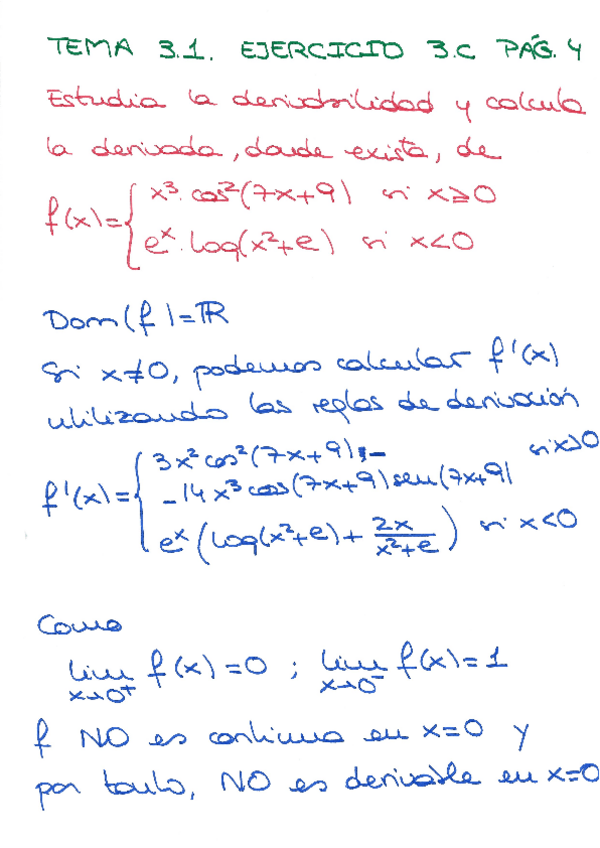 TEMA 3.1. EJERCICIO 3.C PÁG. 4
Estudia la derivabilidad y calcula
la derivada, donde exista, de
f(x)={ x³·cos²(7x+9) si x≥0
e^x·log(x²+e) si x<0
Dom(f)=ℝ
Si x≠0, podemos calcular f'(x)
utilizando las reglas de derivación
f'(x)={ 3x²cos²(7x+9)- si x>0
-14x³cos(7x+9)sen(7x+9)
e^x(log(x²+e)+ 2x/(x²+e)) si x<0
Como
lim x→0⁺ f(x)=0 ; lim x→0⁻ f(x)=1
f NO es continua en x=0 y
por tanto, NO es derivable en x=0